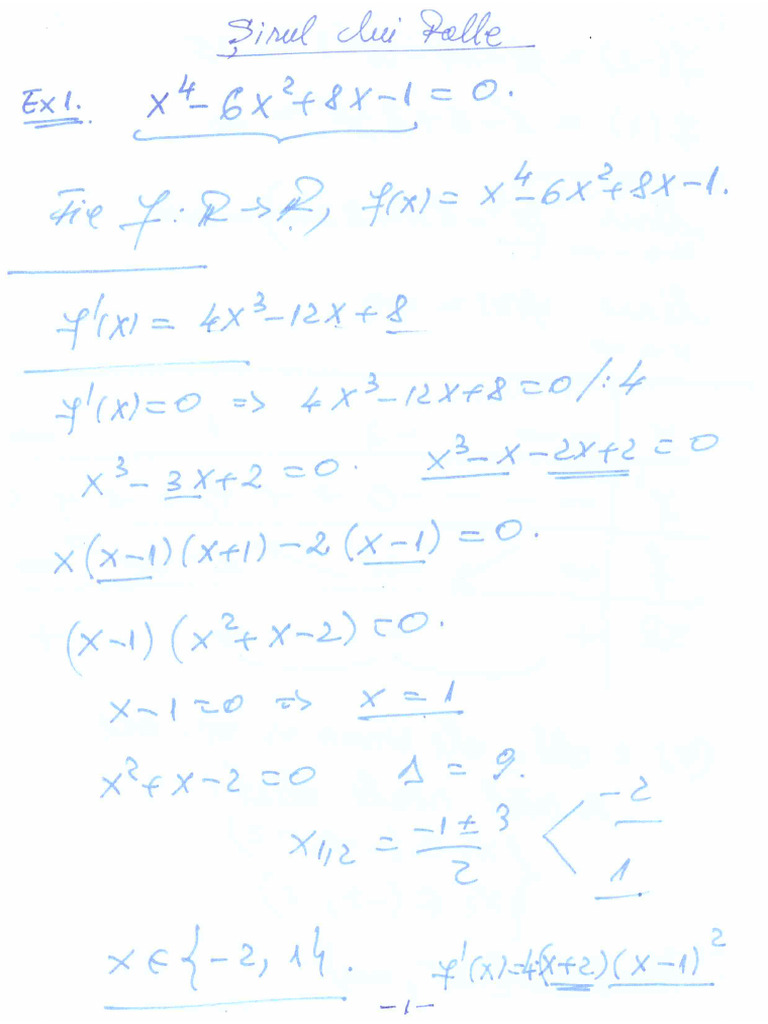 Șirul lui Rolle
Ex1. x⁴-6x²+8x-1=0.
Fie f: ℝ→ℝ, f(x)= x⁴-6x²+8x-1.
f'(x)= 4x³-12x+8
f'(x)=0 => 4x³-12x+8=0 /:4
x³-3x+2=0. x³-x-2x+2=0
x(x-1)(x+1)-2(x-1)=0.
(x-1)(x²+x-2)=0.
x-1=0 => x=1
x²+x-2=0 Δ=9.
x₁,₂ = (-1±3)/2 < -2
1
x∈{-2, 1}. f'(x)=4(x+2)(x-1)²
-1-